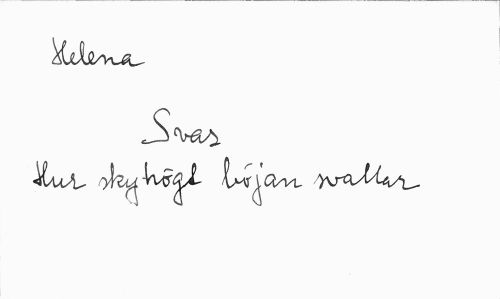 Helena
Svar
Hur skyhögt böjan svallar